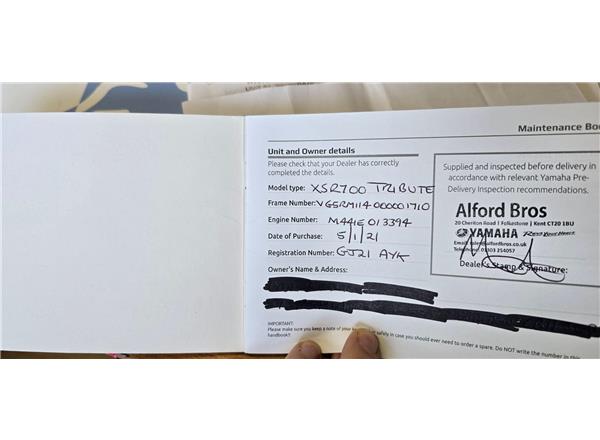 Maintenance Bo
Unit and Owner details
Please check that your Dealer has correctly
completed the details.
Model type: XSR700 TRIBUTE
Frame Number: VG5RM114000001710
Engine Number: M441E013394
Date of Purchase: 5/1/21
Registration Number: GJ21 AYK
Owner's Name & Address:
Supplied and inspected before delivery in
accordance with relevant Yamaha Pre-
Delivery Inspection recommendations.
Alford Bros
20 Cheriton Road | Folkestone | Kent CT20 1BU
YAMAHA Revs Your Heart
Email: sales@alfordbros.co.uk
Telephone: 01303 254057
Dealer's Stamp & Signature:
IMPORTANT:
Please make sure you keep a note of your safely in case you should ever need to order a spare. Do NOT write the number in this
handbook!!